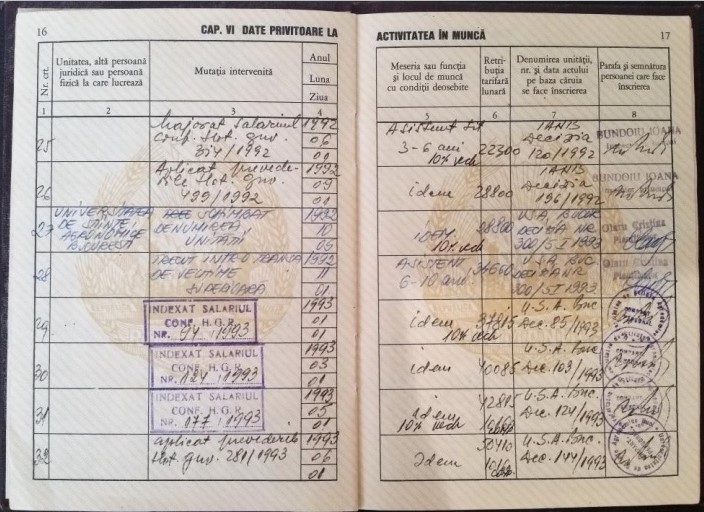 16 CAP. VI DATE PRIVITOARE LA
ACTIVITATEA ÎN MUNCĂ 17
Nr. crt.
Unitatea, altă persoană
juridică sau persoană
fizică la care lucrează
Mutația intervenită
Anul
Luna
Ziua
Meseria sau funcția
și locul de muncă
cu condiții deosebite
Retri-
buția
tarifară
lunară
Denumirea unității,
nr. și data actului
pe baza căruia
se face înscrierea
Parafa și semnătura
persoanei care face
înscrierea
1 2 3 4 5 6 7 8
25
Majorat salariul
conf. Hot. guv.
314/1992
1992
06
01
Asistent
3-6 ani
10% vech
22300
IANB
Decizia
120/1992
RUNDOIU IOANA
26
Aplicat prevede-
rile Hot. guv.
499/1992
1992
09
01
idem
28800
IANB
Decizia
196/1992
RUNDOIU IOANA
27
UNIVERSITATEA
DE STIINTE
AGRONOMICE
BUCURESTI
SCHIMBAT
DENUMIREA
UNITATII
1992
10
05
IDEM
10% vech
28800
USA BUCUR
DECIZIA NR
300/5 I 1993
Cristina
28
TRECUT INTR-O TRANSA
DE VECHIME
SUPERIOARA
1992
11
01
ASISTENT
6-10 ani
34660
USA BUC
DECIZIA NR
300/5 I 1993
Cristina
29
INDEXAT SALARIUL
CONF. H.G.R.
NR. 94 /1993
1993
01
01
idem
10% vech
37815
U.S.A. Buc.
Dec. 85/1993
30
INDEXAT SALARIUL
CONF. H.G.R.
NR. 124 /1993
1993
03
01
idem
40085
U.S.A. Buc.
Dec. 103/1993
31
INDEXAT SALARIUL
CONF. H.G.R.
NR. 177 /1993
1993
05
01
idem
10% vech
42815
U.S.A. Buc.
Dec. 124/1993
32
Aplicat prevederile
Hot. guv. 281/1993
1993
06
01
Idem
50410
U.S.A. Buc.
Dec. 144/1993